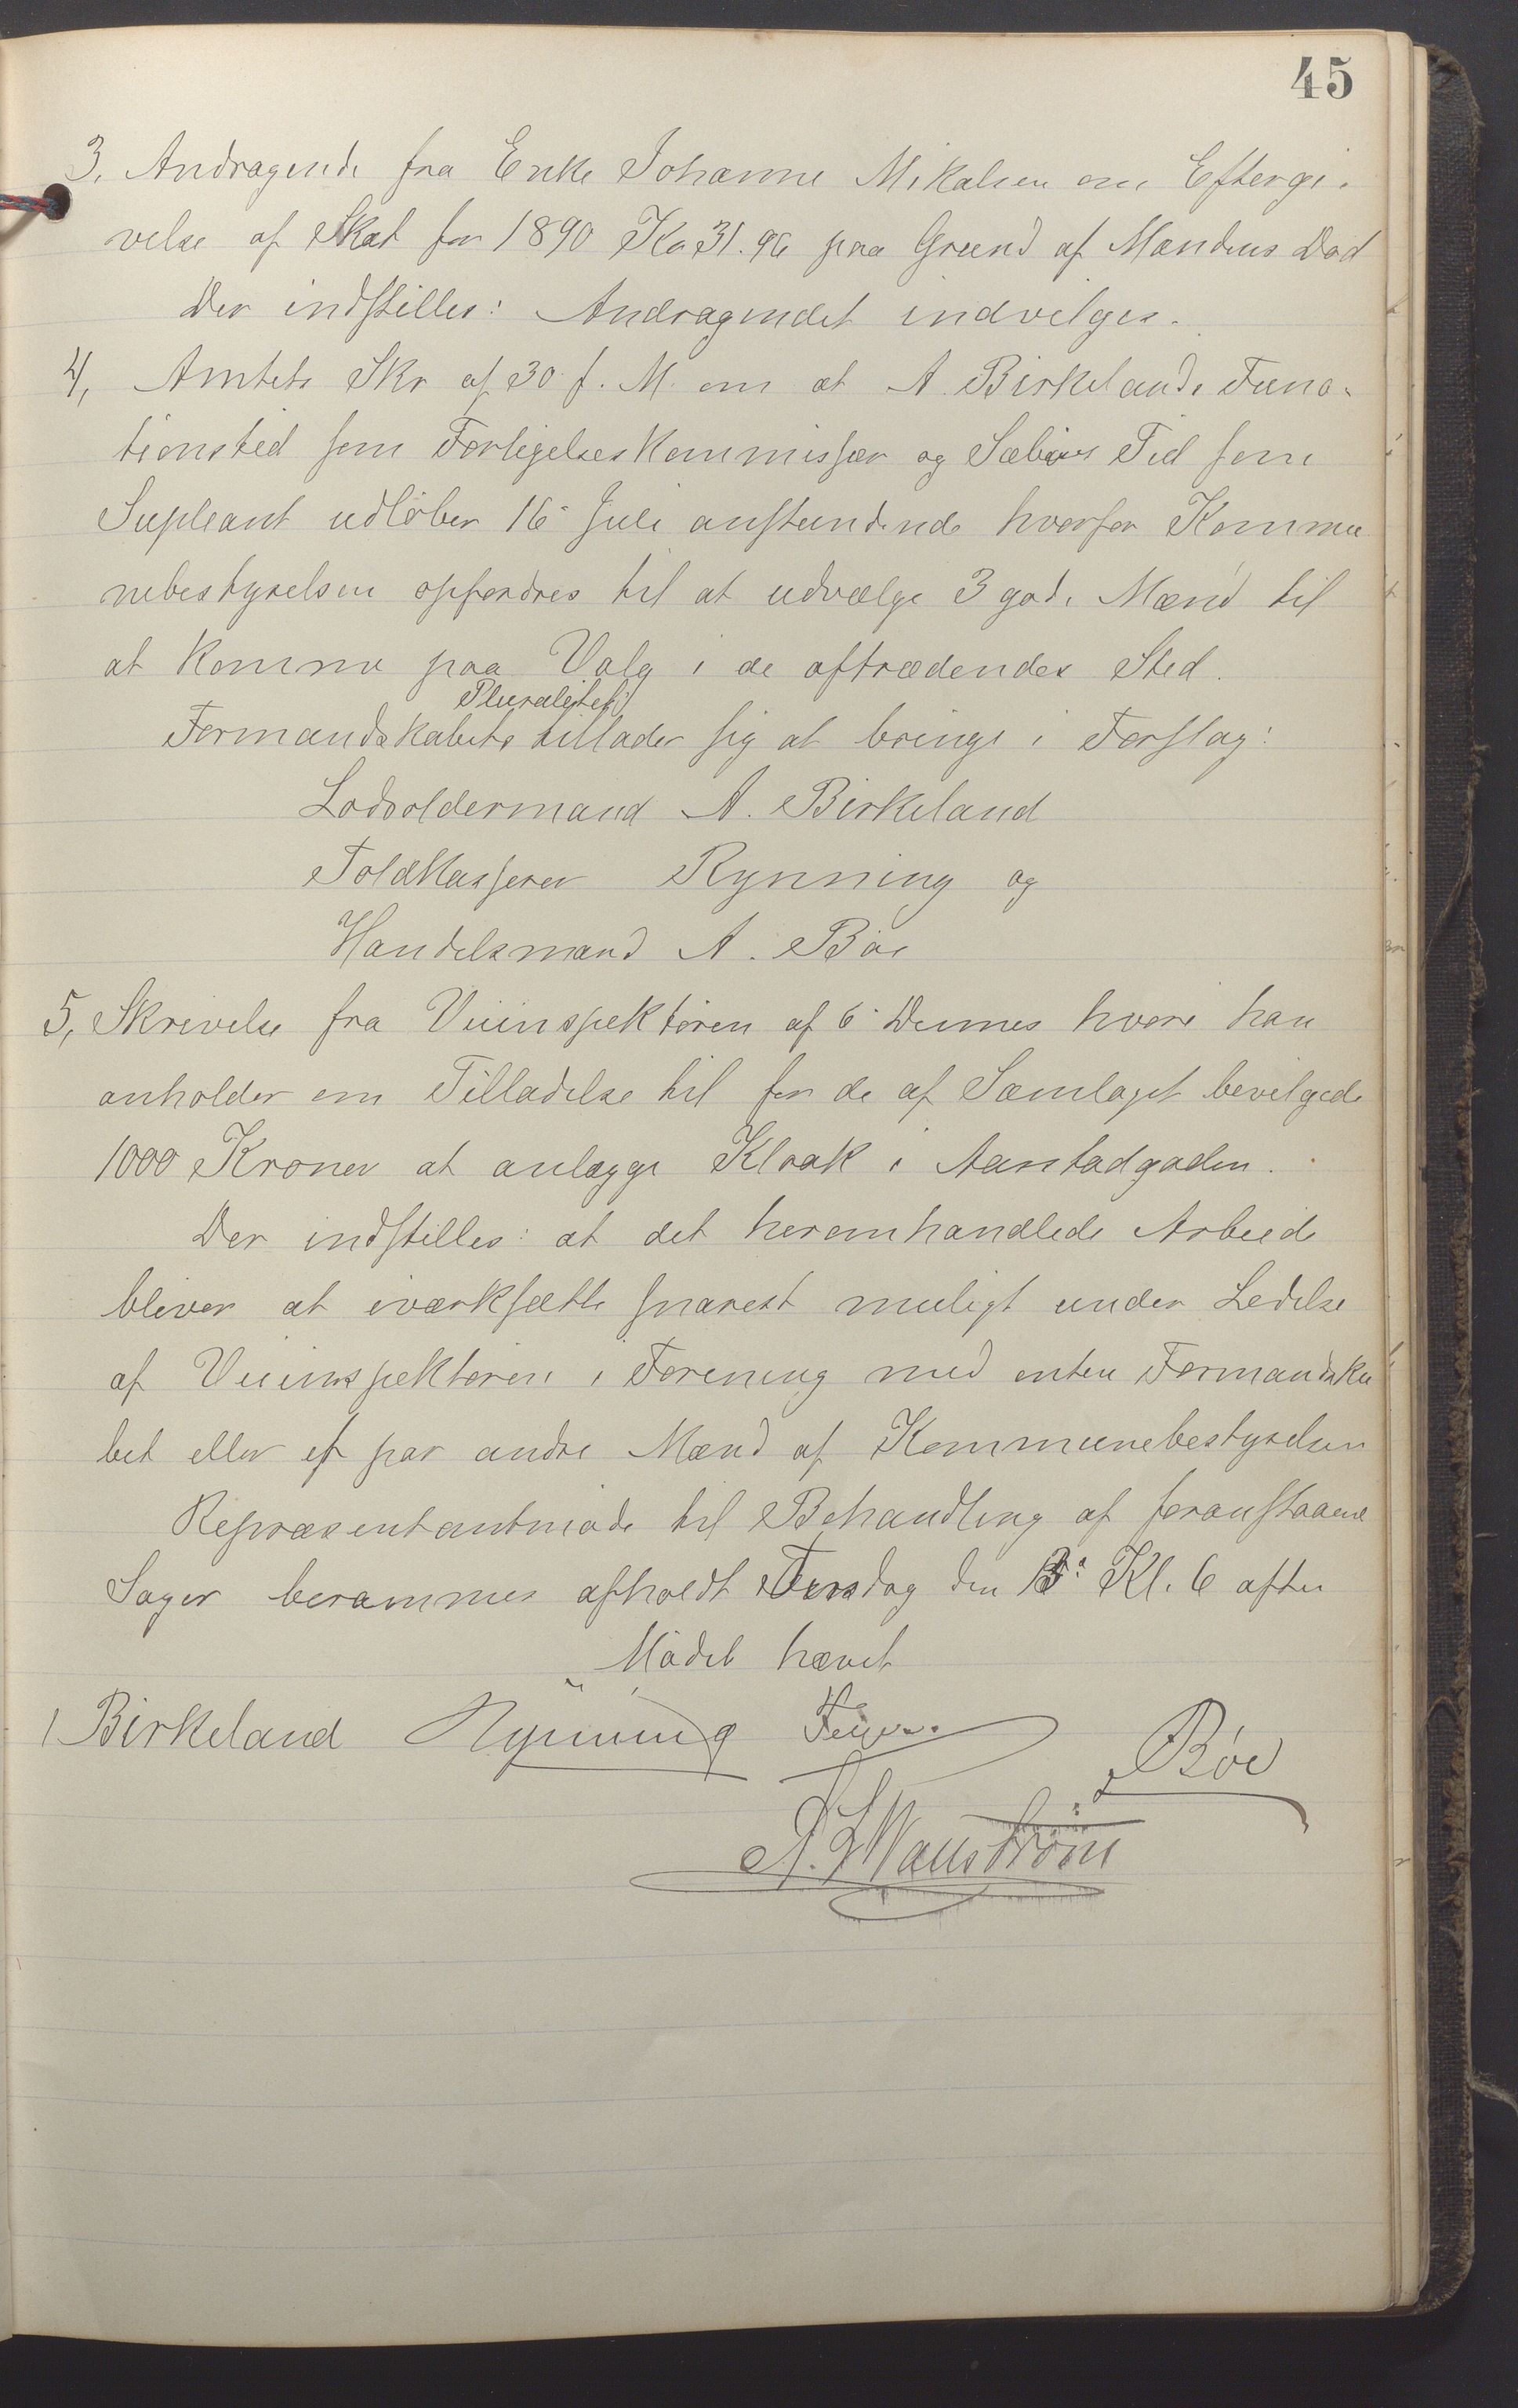 45
3, Andragende fra Enke Johanne Mikalsen om Eftergi-
velse af Skat for 1890 Kr 31.96 paa Grund af Mandens Død
Der indstilles: Andragendet indvilges.
4, Amtets Skr af 30 f. M. om at A. Birkelands Func-
tionstid som Forligelseskommissær og Sæbøes Tid som
Supleant udløber 16 Juli anstundende hvorfor Kommu
nebestyrelsen opfordres til at udvælge 3 gode Mænd til
at komme paa Valg i de aftrædendes Sted.
Pluralitet
Formandskabets tillader sig at bringe i Forslag:
Lodsoldermand A. Birkeland
Toldkasserer Rynning og
Handelsmand A. Bøe
5, Skrivelse fra Veiinspektøren af 6 Dennes hvori han
anholder om Tilladelse til for de af Samlaget bevilgede
1000 Kroner at anlægge Kloak i Aanstadgaden.
Der indstilles: at det heromhandlede Arbeide
bliver at iværksætte snarest muligt under Ledelse
af Veiinspektøren i Forening med enten Formandska
bet eller et par andre Mænd af Kommunebestyrelsen
Repræsentantmøde til Behandling af foranstaaende
Sager berammes afholdt Tirsdag den Kl. 6 often
Mødet hævet
Birkeland Rynning
Bøe